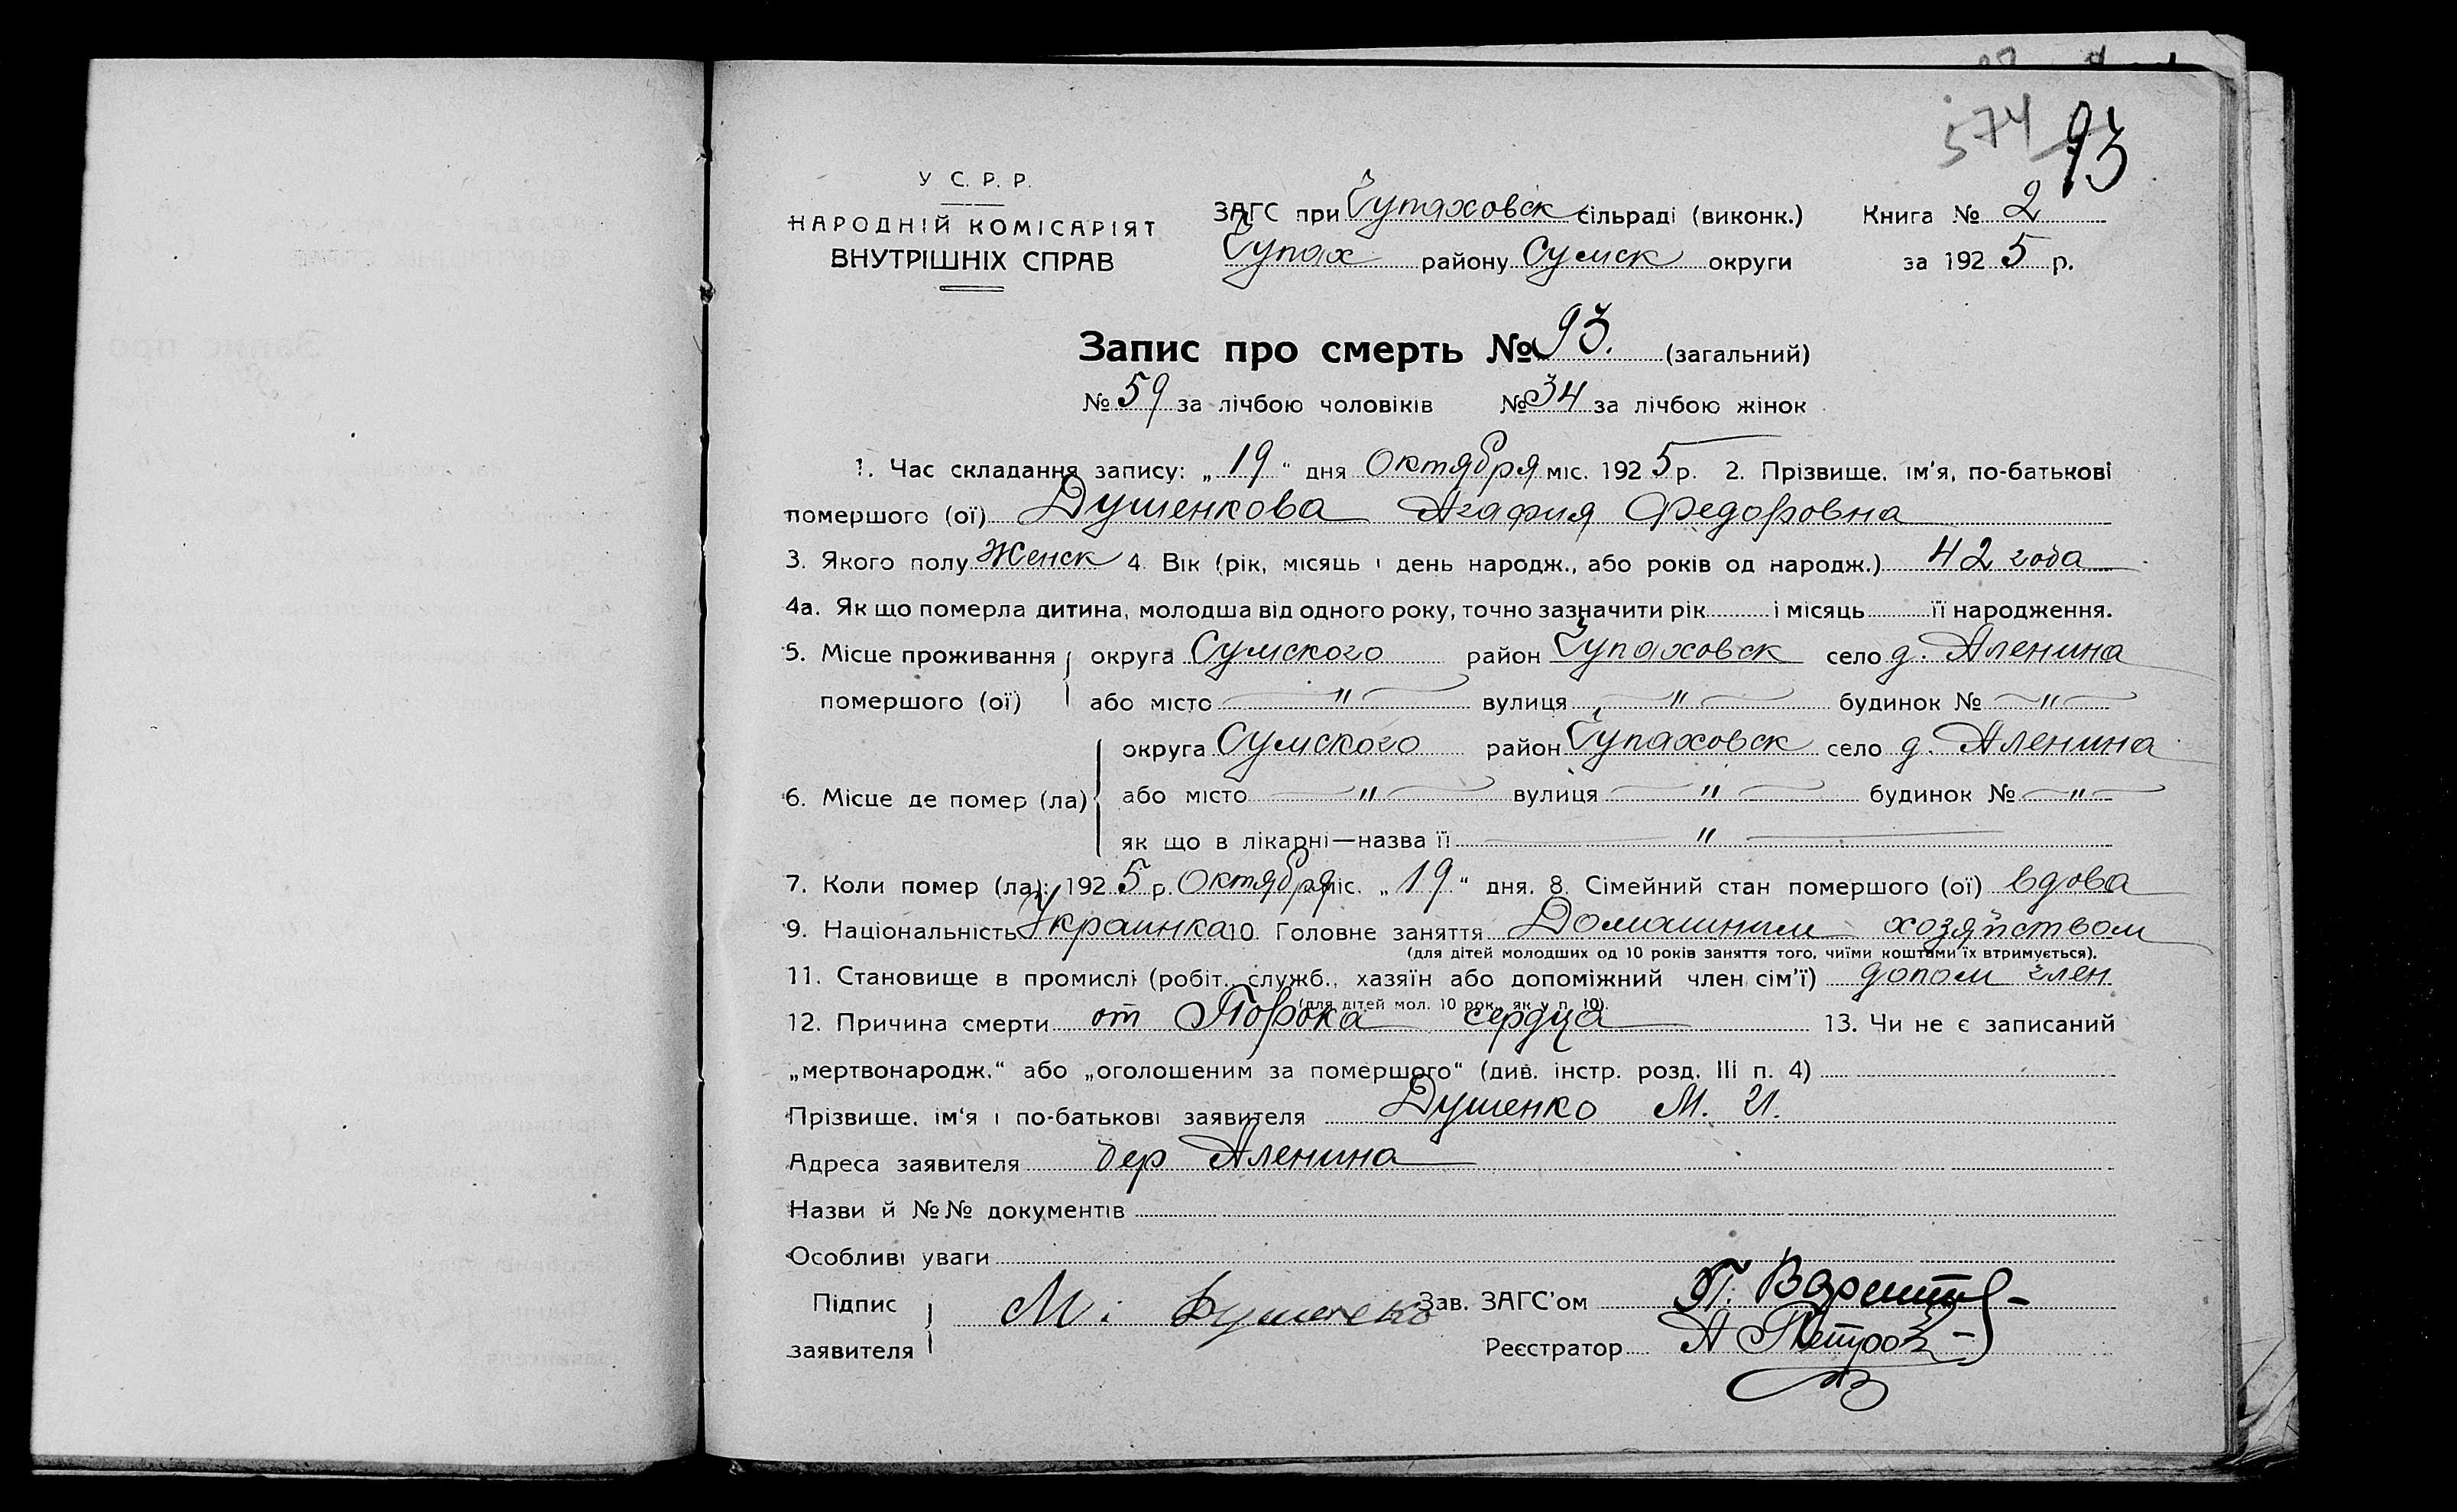 574
93
У С. Р. Р.
НАРОДНІЙ КОМІСАРІЯТ
ВНУТРІШНІХ СПРАВ
ЗАГС при Чупаховск сільраді (виконк.) Книга № 2
Чупах району Сумск округи за 1925 р.
Запис про смерть № 93. (загальний)
№ 59 за лічбою чоловіків № 34 за лічбою жінок
1. Час складання запису: „19“ дня Октября міс. 1925 р. 2. Прізвище, ім'я, по-батькові
помершого (ої) Душенкова Агафия Федоровна
3. Якого полу Женск 4. Вік (рік, місяць і день народж., або років од народж.) 42 года
4а. Як що померла дитина, молодша від одного року, точно зазначити рік і місяць її народження.
5. Місце проживання округа Сумского район Чупаховск село д. Аленина
помершого (ої) або місто — " — вулиця — " — будинок № — " —
округа Сумского район Чупаховск село д. Аленина
6. Місце де помер (ла) або місто — " — вулиця — " — будинок № — " —
як що в лікарні—назва її — " —
7. Коли помер (ла): 1925 р. Октября міс. „19“ дня. 8. Сімейний стан помершого (ої) вдова
9. Національність Украинка 10. Головне заняття Домашним хозяйством
(для дітей молодших од 10 років заняття того, чиїми коштами їх втримується).
11. Становище в промислі (робіт., служб., хазяїн або допоміжний член сім'ї) допом член
(для дітей мол. 10 рок., як у п. 10).
12. Причина смерти от Порока сердца 13. Чи не є записаний
„мертвонародж.“ або „оголошеним за помершого“ (див. інстр. розд. III п. 4)
Прізвище, ім'я і по-батькові заявителя Душенко М. И.
Адреса заявителя дер Аленина
Назви й №№ документів
Особливі уваги
Підпис заявителя М. Душенко Зав. ЗАГС'ом
Реєстратор А Петров